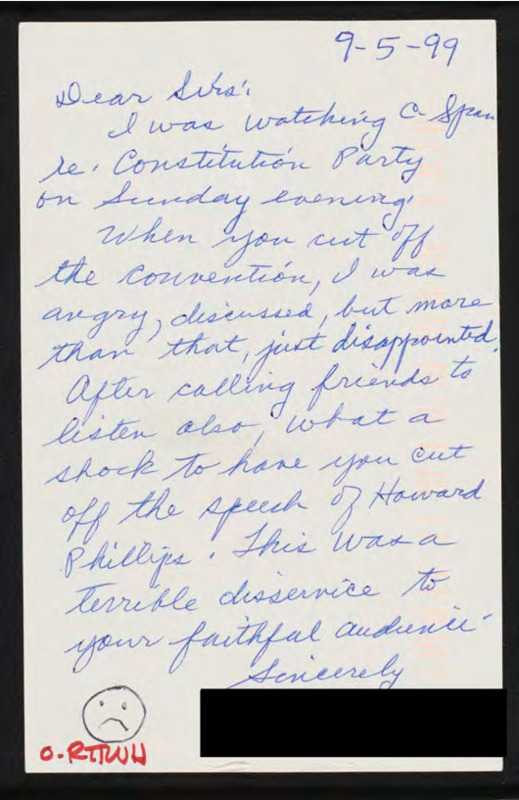 9-5-99
Dear Sirs:
I was watching C-Span
re. Constitution Party
on Sunday evening.
When you cut off
the convention, I was
angry, discussed, but more
than that, just disappointed.
After calling friends to
listen also, what a
shock to have you cut
off the speech of Howard
Phillips. This was a
terrible disservice to
your faithful audience
Sincerely
O-RTTWH